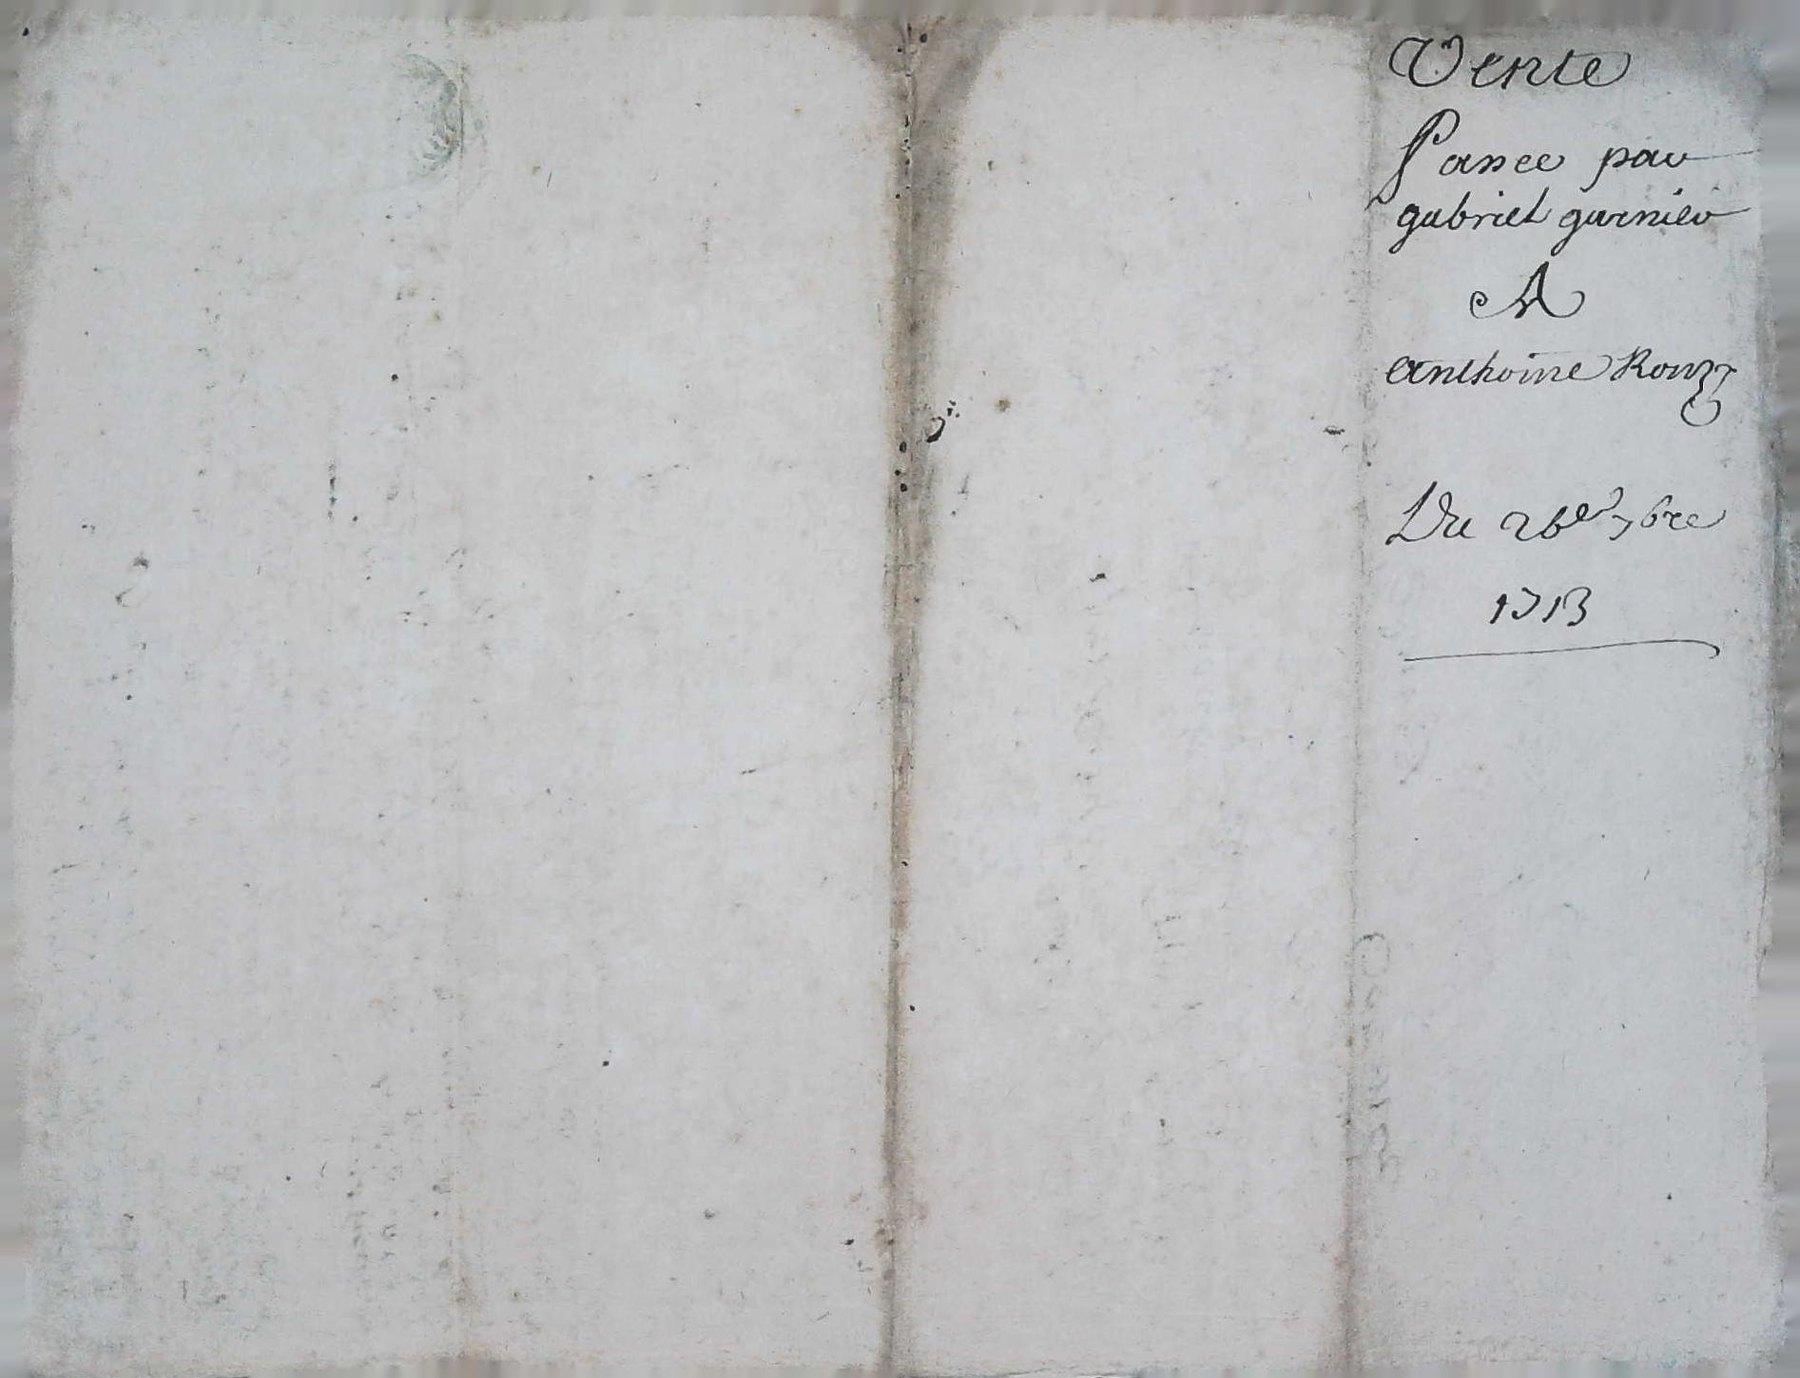 Vente
Passee par
gabriel garnier
A
anthoine Rouzy
Du 26e 7bre
1713